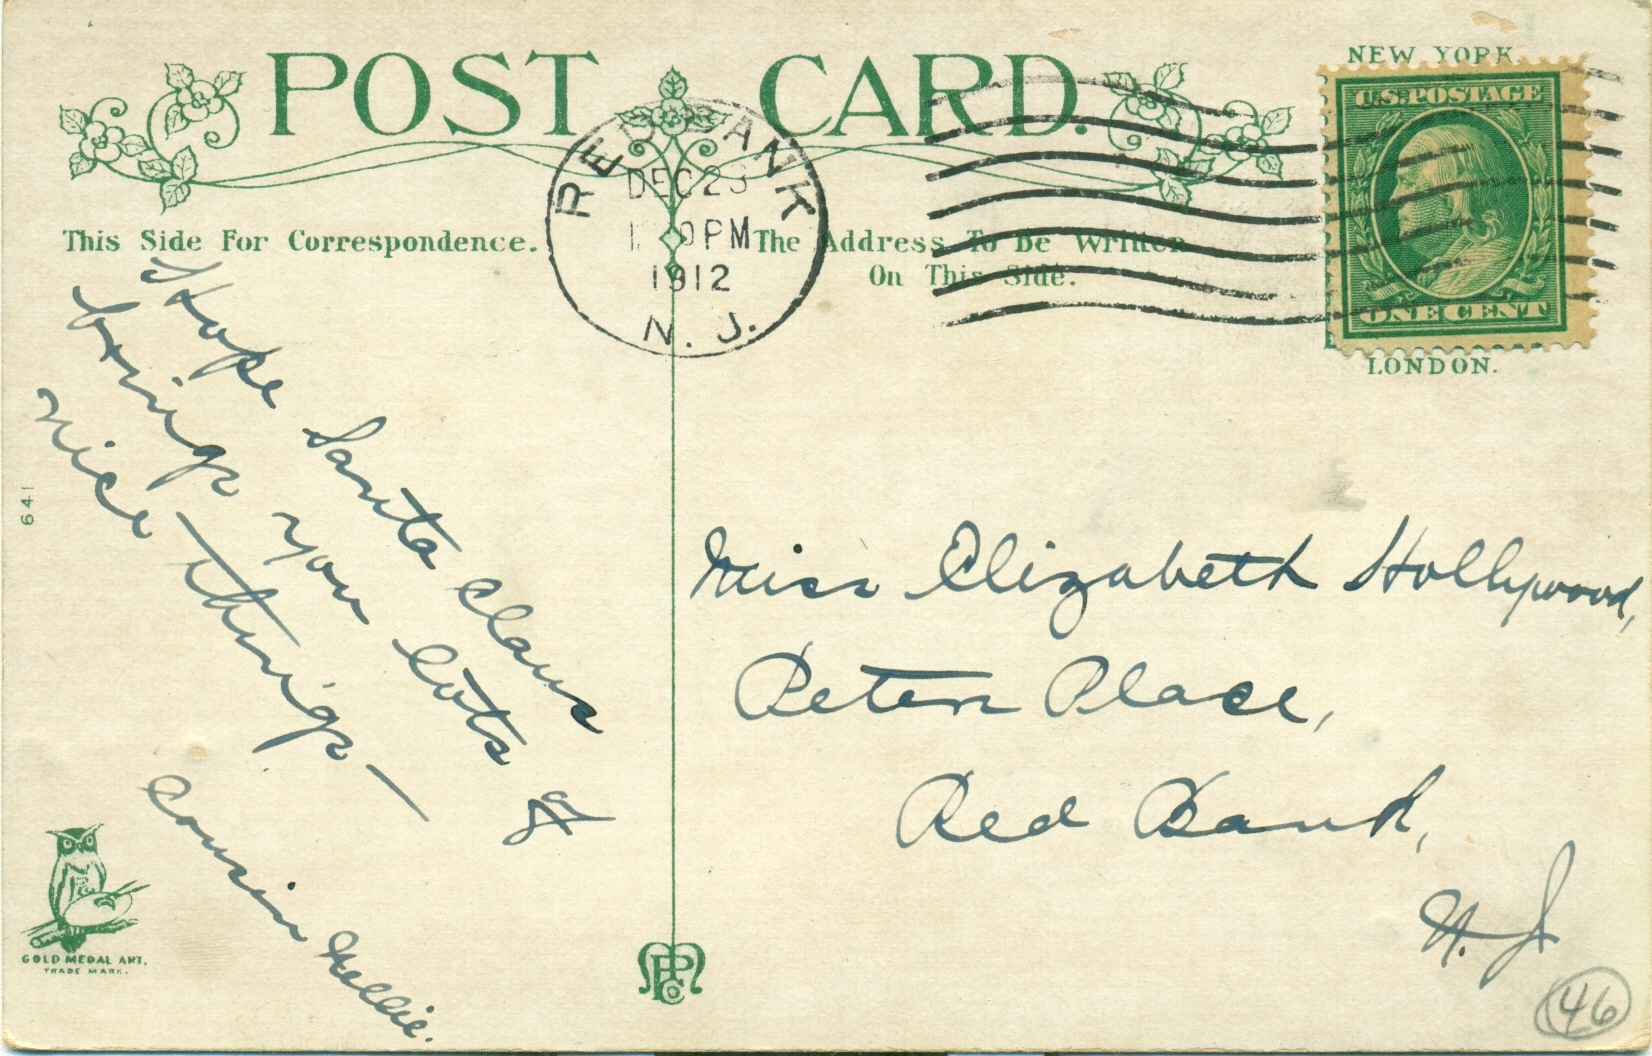 POST CARD.
NEW YORK.
U.S. POSTAGE
ONE CENT
LONDON.
RED BANK
DEC 23
PM
1912
N. J.
This Side For Correspondence.
The Address To Be Written
On This Side.
Hope Santa Claus
brings you lots of
nice things—
Cousin Nellie.
Miss Elizabeth Hollywood,
Peters Place,
Red Bank,
N. J.
641
GOLD MEDAL ART.
TRADE MARK.
46